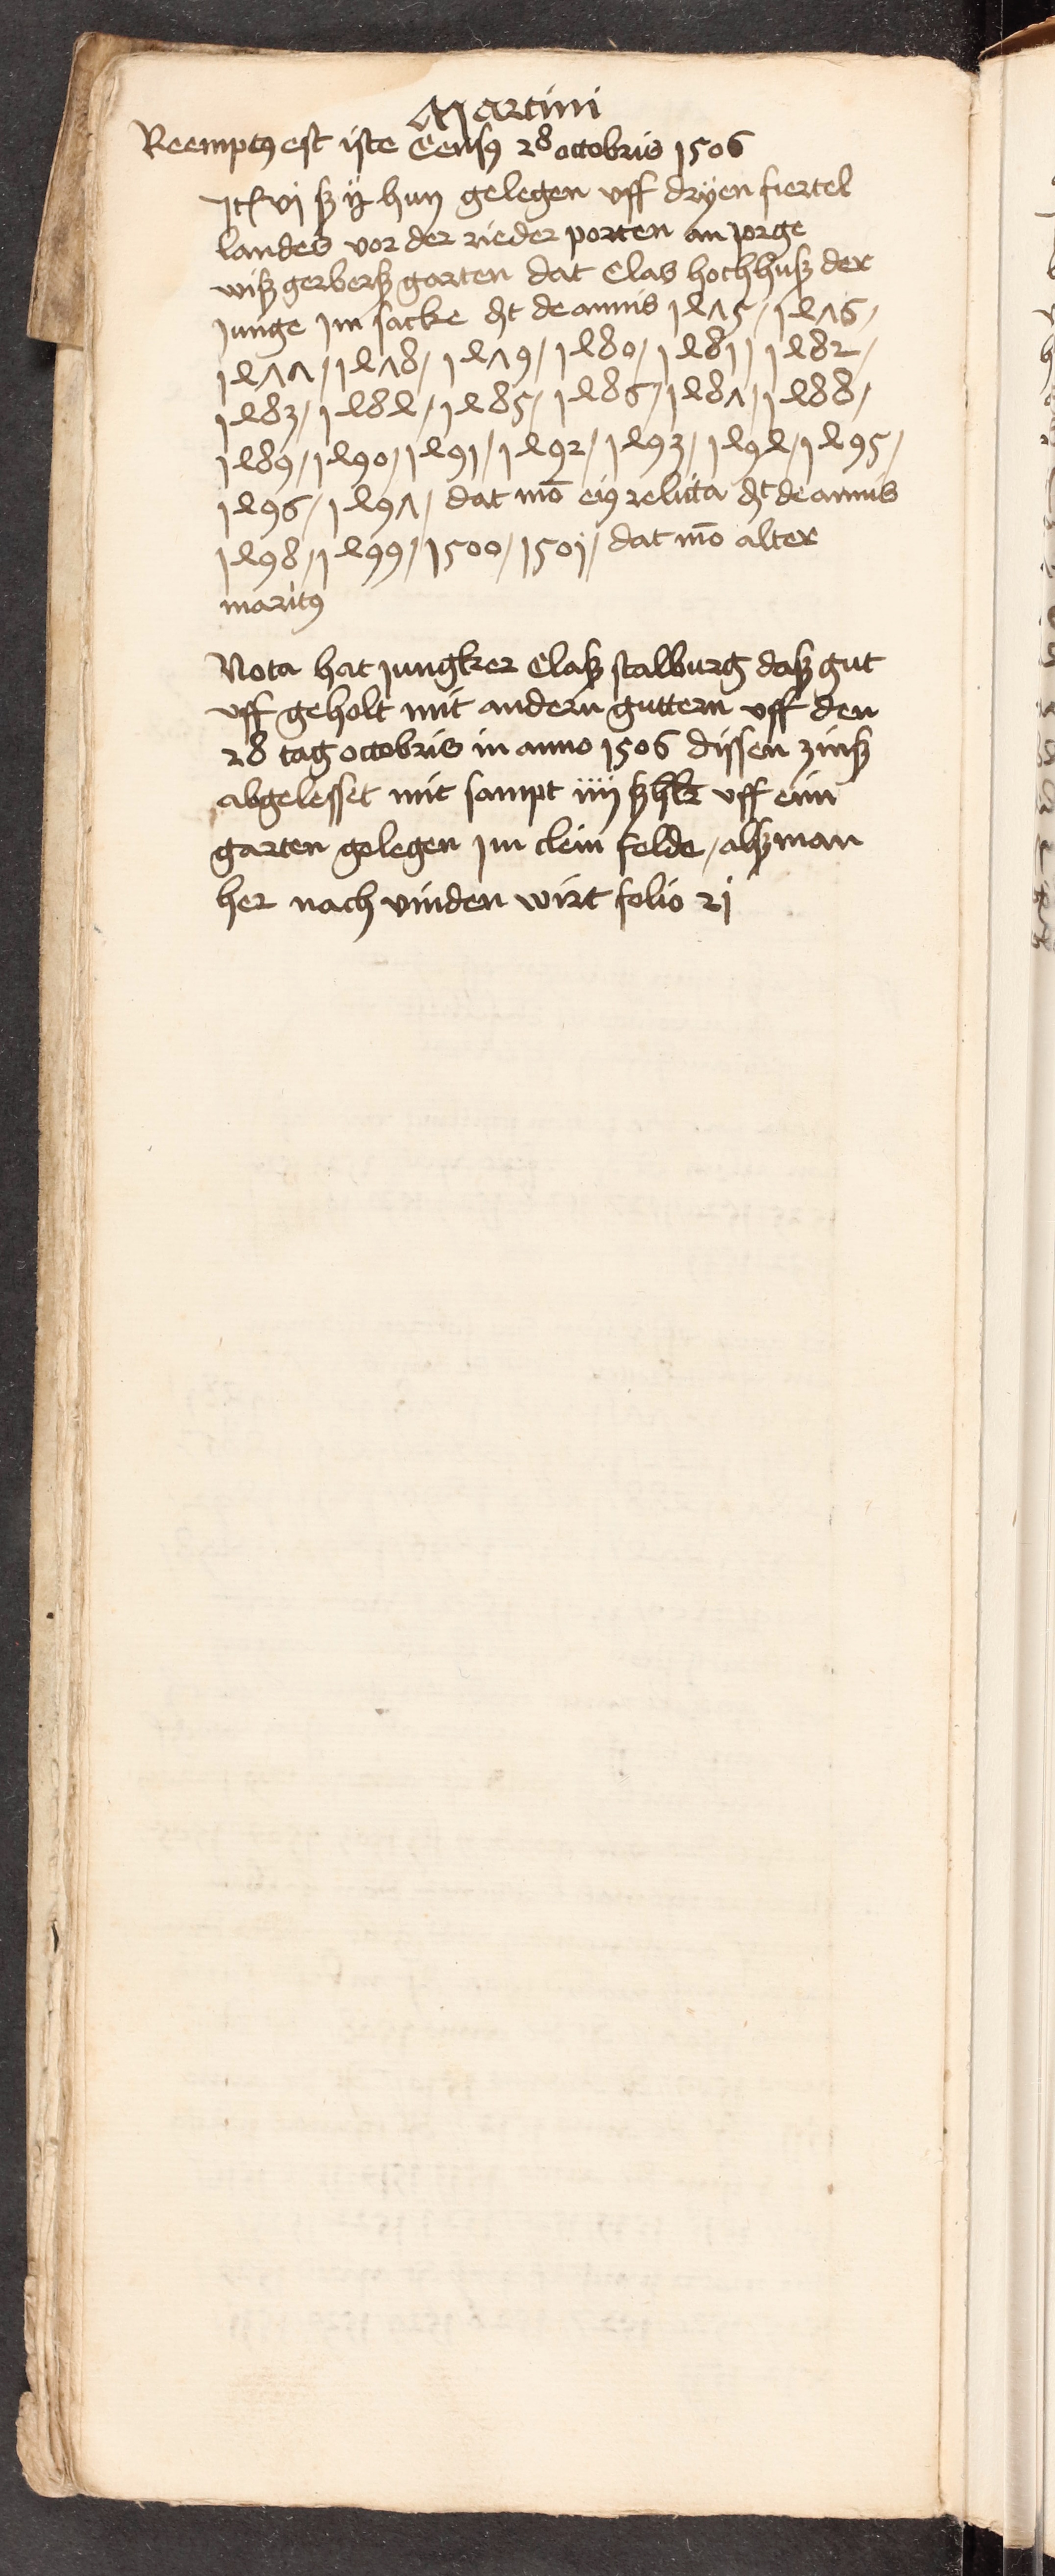 Martini
Reemptꝰ est iste Censꝰ 28 octobris 1506
It̃ vj ß ij hun gelegen vff dryen fiertel
landes vor der rieder porten an jorge
wißgerberß garten dat Clas hochhuß der
junge im sacke dt de annis 1475 / 1476 /
1477 / 1478 / 1479 / 1480 / 1481 / 1482 /
1483 / 1484 / 1485 / 1486 / 1487 / 1488 /
1489 / 1490 / 1491 / 1492 / 1493 / 1494 / 1495 /
1496 / 1497 / dat mō eiꝰ relicta dt de annis
1498 / 1499 / 1500 / 1501 / dat mō alter
maritꝰ
Nota hat jungker Claß stalburg daß gut
vff geholt mit andern guttern vff den
28 tag octobris in anno 1506 dissen zinß
abgelesset mit sampt iiij ß hlr vff eim
garten gelegen im clein felde / alß man
her nach vinden wirt folio 21